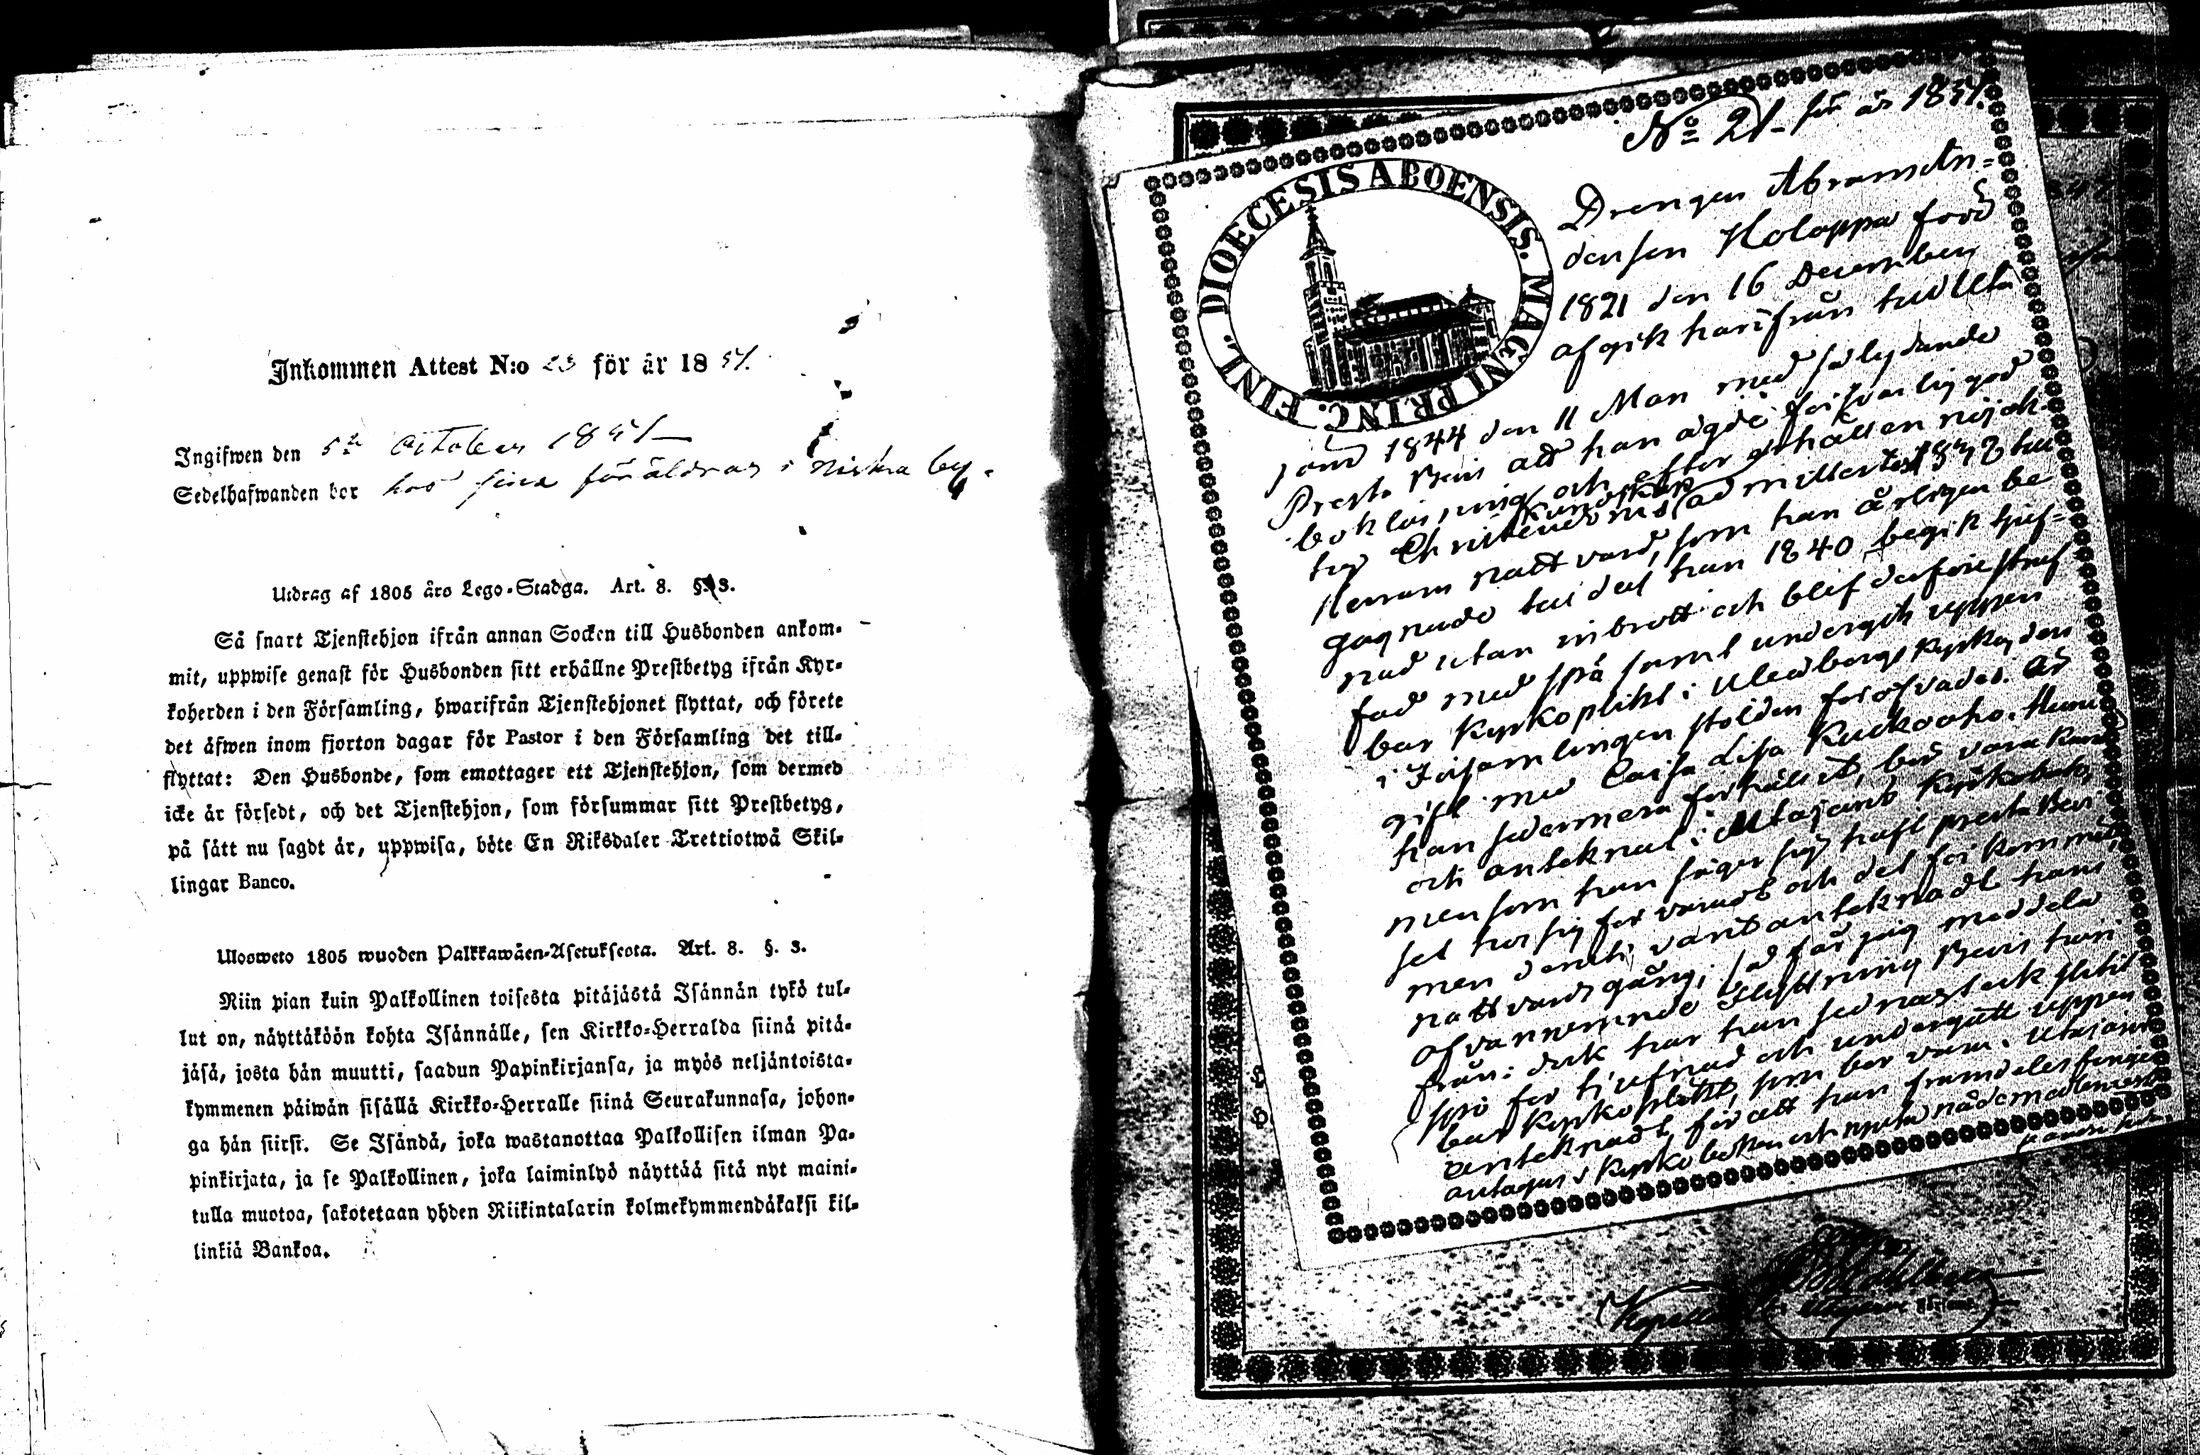 Inkommen Attest N:o 23 för år 1851.
Ingifwen den 5te october 1851
Sedelhafwanden bor hos sina föräldrar i Niska by.
Utdrag af 1805 års Lego-Stadga. Art. 8. §. 3.
Så snart Tjenstehjon ifrån annan Socken till Husbonden ankom-
mit, uppwise genast för Husbonden sitt erhållne Prestbetyg ifrån Kyr-
koherden i den Församling, hwarifrån Tjenstehjonet flyttat, och förete
det äfwen inom fjorton dagar för Pastor i den Församling det till-
flyttat: Den Husbonde, som emottager ett Tjenstehjon, som dermed
icke är försedt, och det Tjenstehjon, som försummar sitt Prestbetyg,
på sätt nu sagdt är, uppwisa, böte En Riksdaler Trettiotwå Skil-
lingar Banco.
Ulosweto 1805 wuoden Palkkawäen-Asetuksesta. Art. 8. §. 3.
Niin pian kuin Palkollinen toisesta pitäjästä Isännän tykö tul-
lut on, näyttäköön kohta Isännälle, sen Kirkko-Herralda siinä pitä-
jäsä, josta hän muutti, saadun Papinkirjansa, ja myös neljäntoista-
kymmenen päiwän sisällä Kirkko-Herralle siinä Seurakunnasa, johon-
ga hän siirsi. Se Isändä, joka wastanottaa Palkollisen ilman Pa-
pinkirjata, ja se Palkollinen, joka laiminlyö näyttää sitä nyt maini-
tulla muotoa, sakotetaan yhden Riikintalarin kolmekymmendäkaksi kil-
linkiä Bankoa.
DIOECESIS ABOENSIS. MAGNI PRINC. FINL.
No 21 för år 1851.
Drengen Abram An-
dersson Holappa född
1821 den 16 December
afgik härifrån till Ut
1844 den 11 Man med så lydande
Prest. Bevis att han ägde försvarlig god
bokläsning och efter erhållen nöjak-
tig Christendoms kunskap admitterts 1838 till
Herrans nattvard, som han årligen be
gagnade till dess han 1840 begik tjuf-
nad utan inbrott och blef derföre straf
fad med spö samt undergik uppen
bar Kyrkoplikt i Uleåborgs Kyrka den
i Församlingen stölden föröfvades. Är
gift med Caisa Lisa Kuckoaho. Huru
han sedermera förhållit, bör vara känd
och anteknat i Utajärvi Kyrkobok,
men som han säger sig haft prestabevi
set hos sig förvaradt och det förkommit,
men denti varit anteknadt hans
nattvardsgång, så får jag meddela
ofvannemnde Flyttning Bevis häri
från: dock har han sednast ock slitit
spö för tjufnad och undergått uppen
bar Kyrkoplikt, som bör vara i Utajärvi
anteknadt, för att han framdeles
antagas i Kyrkoboken och njuta nådemedlen